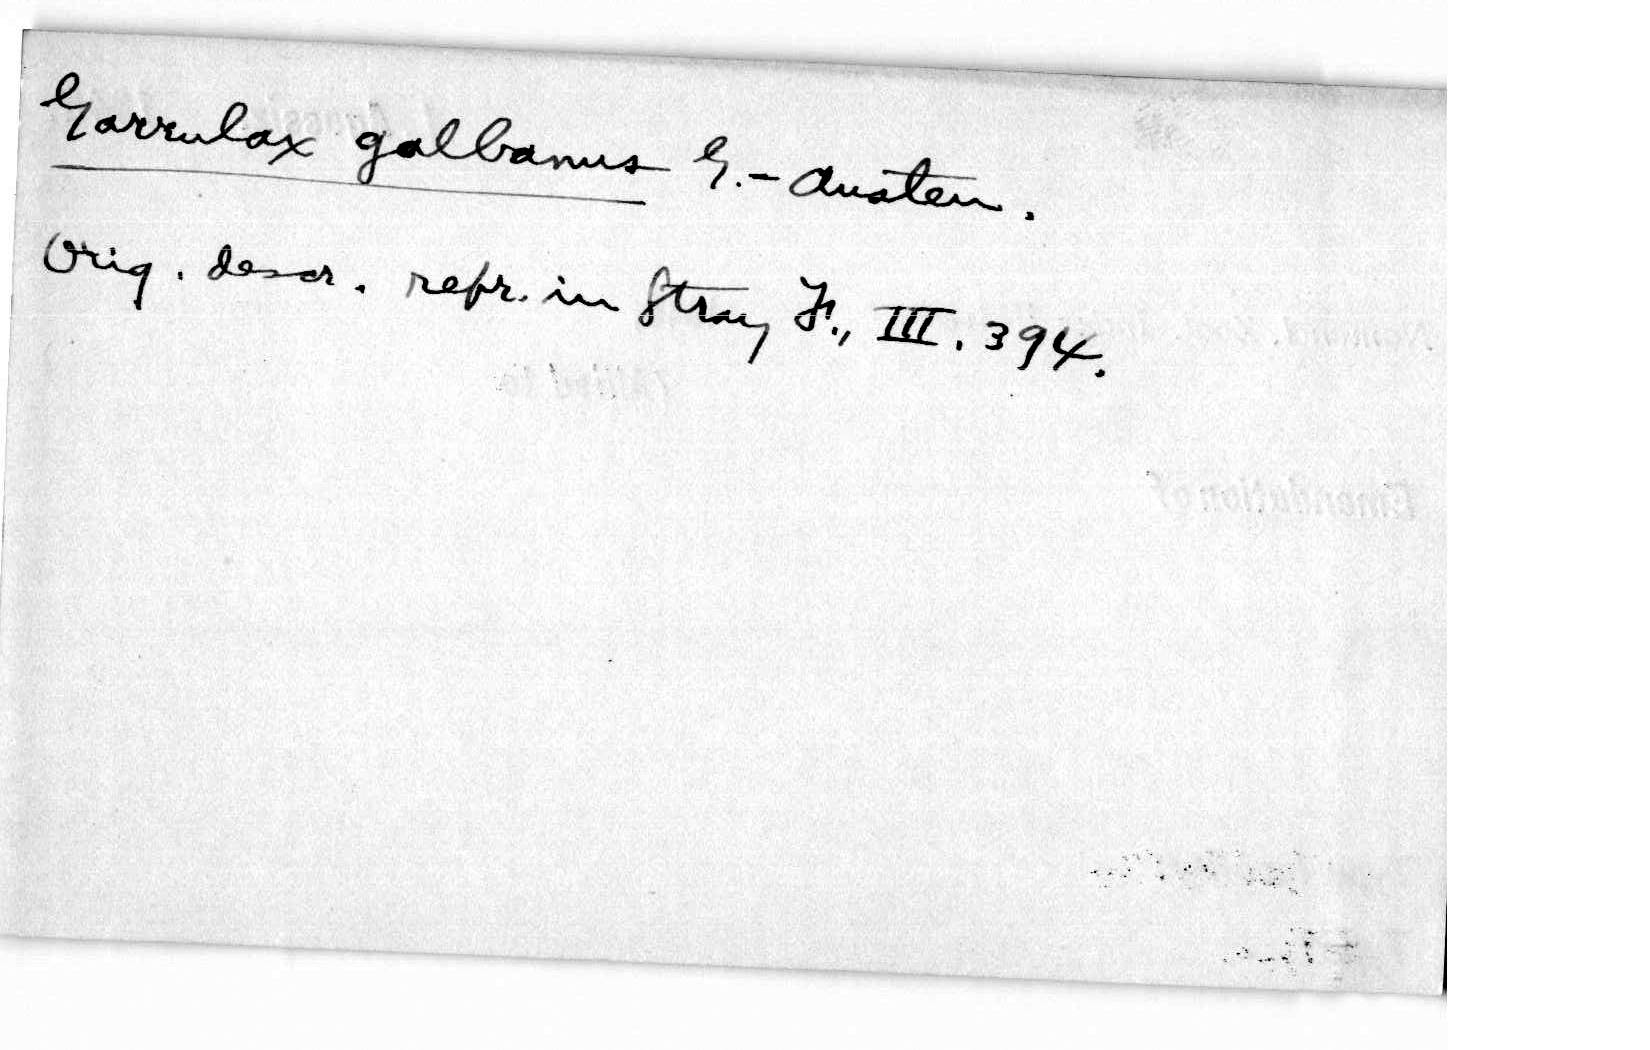 Garrulax galbanus G.-Austen.
Orig. descr. repr. in Stray F., III. 394.